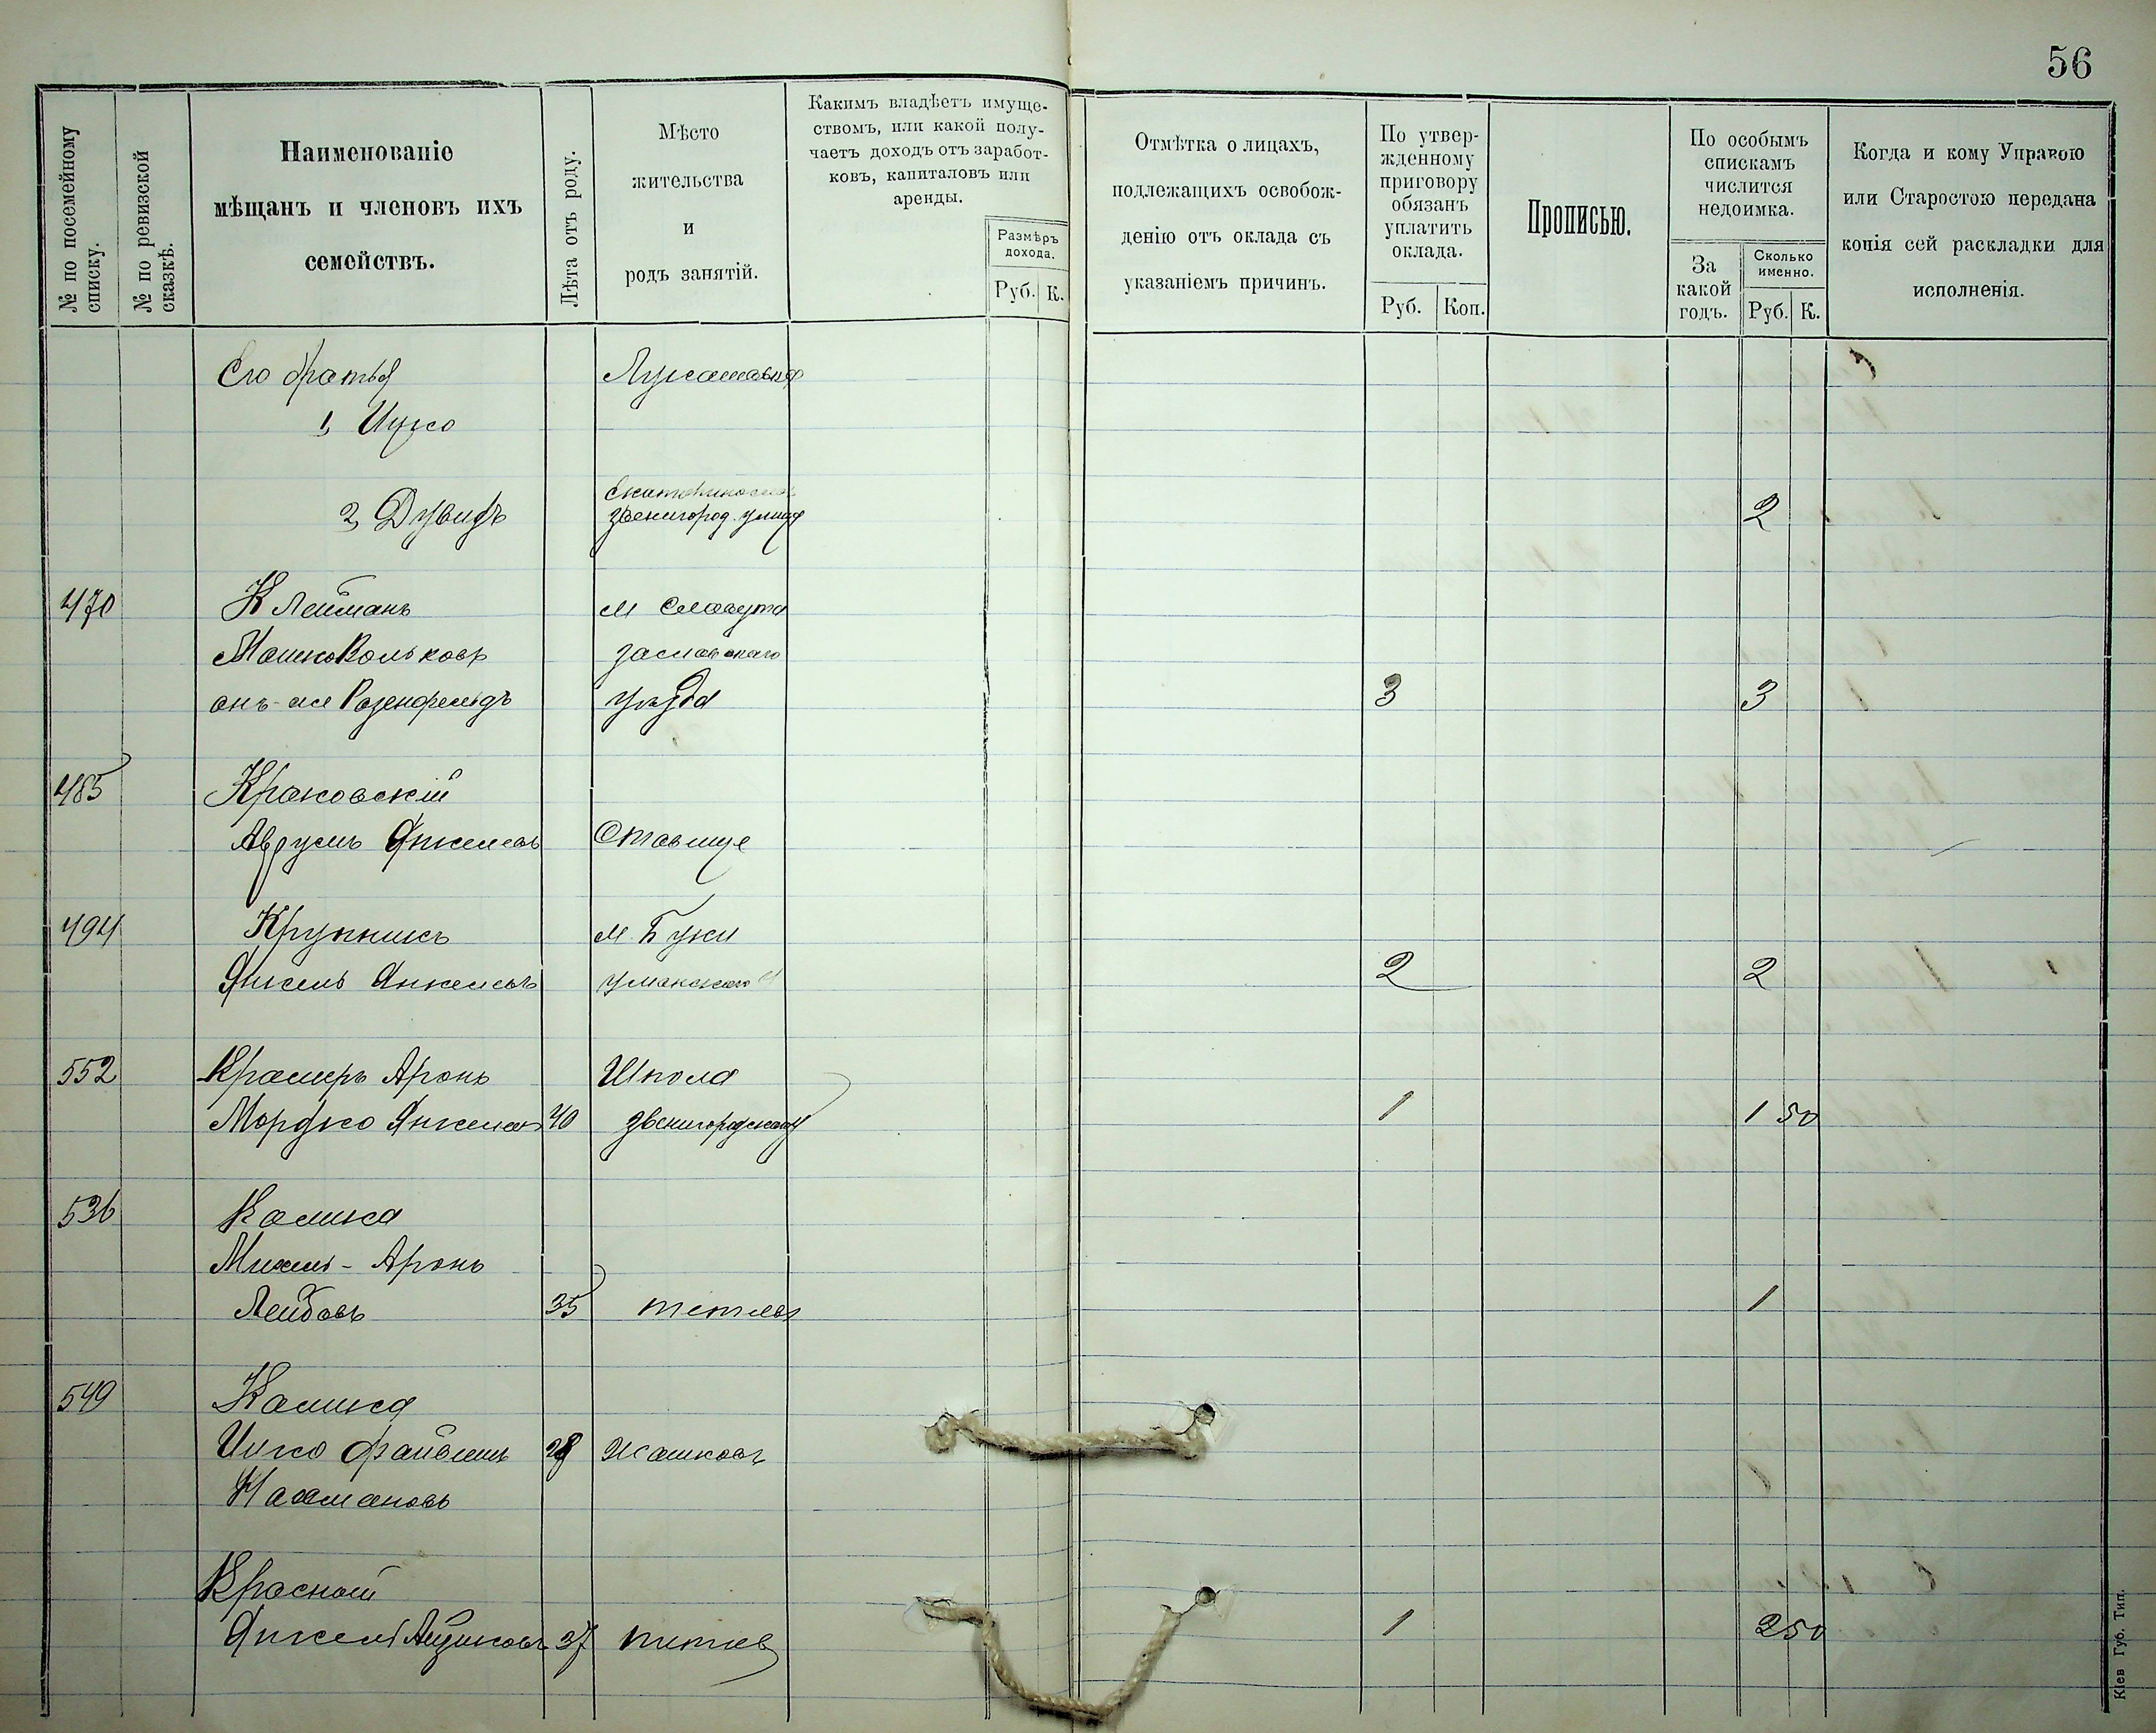 56
№ по посемейному списку.
№ по ревизской сказкѣ.
Наименованіе
мѣщанъ и членовъ ихъ
семействъ.
Лѣта отъ роду.
Мѣсто
жительства
и
родъ занятій.
Какимъ владѣетъ имуще-
ствомъ, или какой полу-
чаетъ доходъ отъ заработ-
ковъ, капиталовъ или
аренды.
Размѣръ
дохода.
Руб. К.
Отмѣтка о лицахъ,
подлежащихъ освобож-
денію отъ оклада съ
указаніемъ причинъ.
По утвер-
жденному
приговору
обязанъ
уплатить
оклада.
Руб. Коп.
Прописью.
По особымъ
спискамъ
числится
недоимка.
За
какой
годъ.
Сколько
именно.
Руб. К.
Когда и кому Управою
или Старостою передана
копія сей раскладки для
исполненія.
Его братья
1, Ицко
2, Дувидъ
звенигород. 2
470 Клейман
Мошко Вольковъ заславскаго
онъ-же Розенфельдъ уѣзда 3 3
485 Краковскій
Аврумъ Янкелевъ Ставище
494 Крупникъ м. Буки
Янкель Янкелевъ уманскаго 2 2
552 Крамеръ Аронъ Шпола
Мордко Янкелевъ 40 звенигородскаго 1 1 50
536 Калика
Михель-Аронъ
Лейбовъ 35 тетіевъ 1
549 Калика
Ицко Файвишъ 28 Жашковъ
Нахмановъ
Красной
Янкель Айзиковъ 37 тетіев 1 2 50
Кіев Губ. Тип.